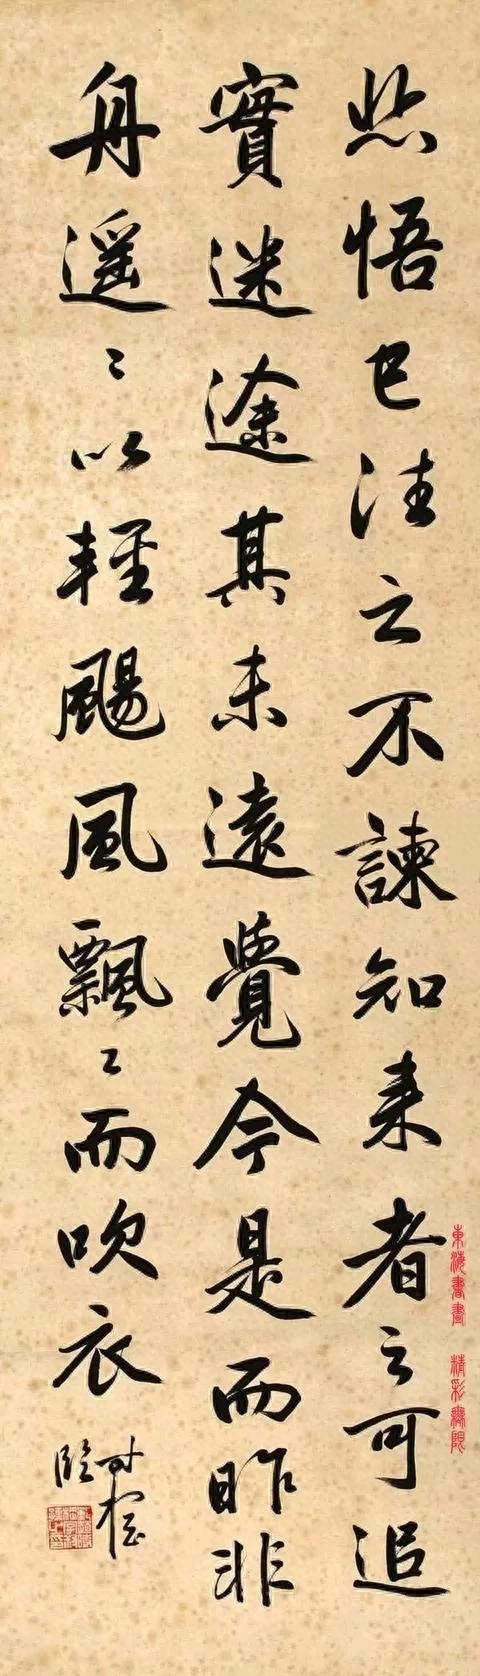 悲悟已往之不諫知来者之可追
實迷途其未遠覺今是而昨非
舟遥〻以輕颺風飄〻而吹衣
臨
東海書畫 精彩無限